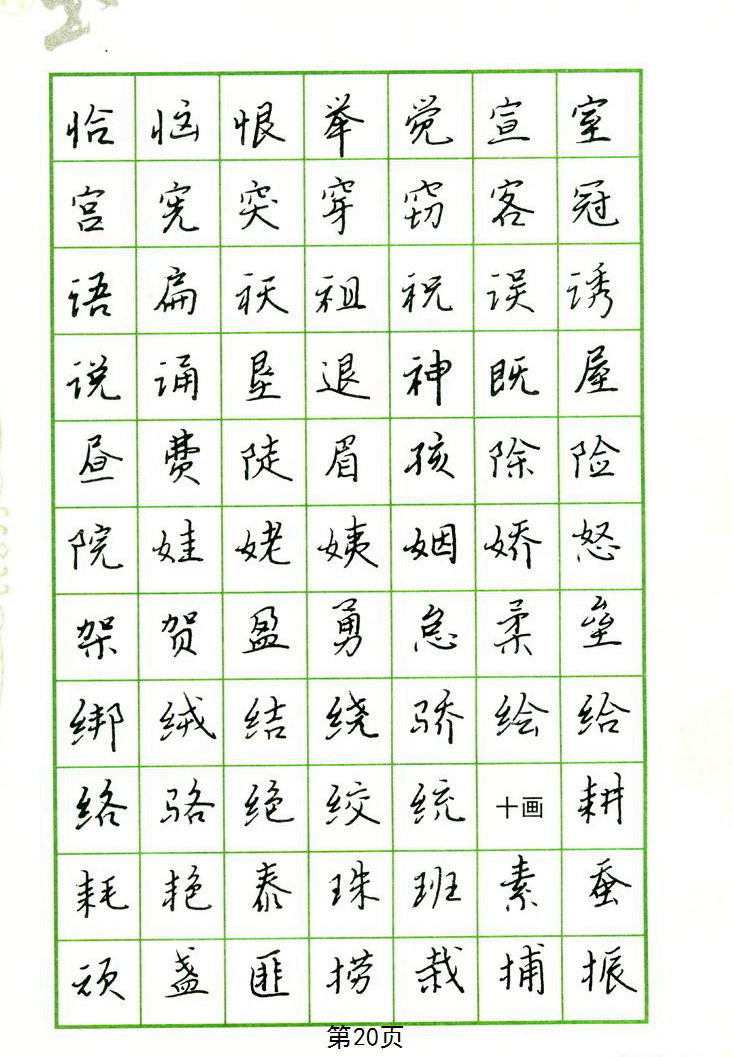 恰恼恨举觉宣室
宫宪突穿窃客冠
语扁袄祖祝误诱
说诵垦退神既屋
昼费陡眉孩除险
院娃姥姨姻娇怒
架贺盈勇怠柔垒
绑绒结绕骄绘给
络骆绝绞统十画耕
耗艳泰珠班素蚕
顽盏匪捞栽捕振
第20页